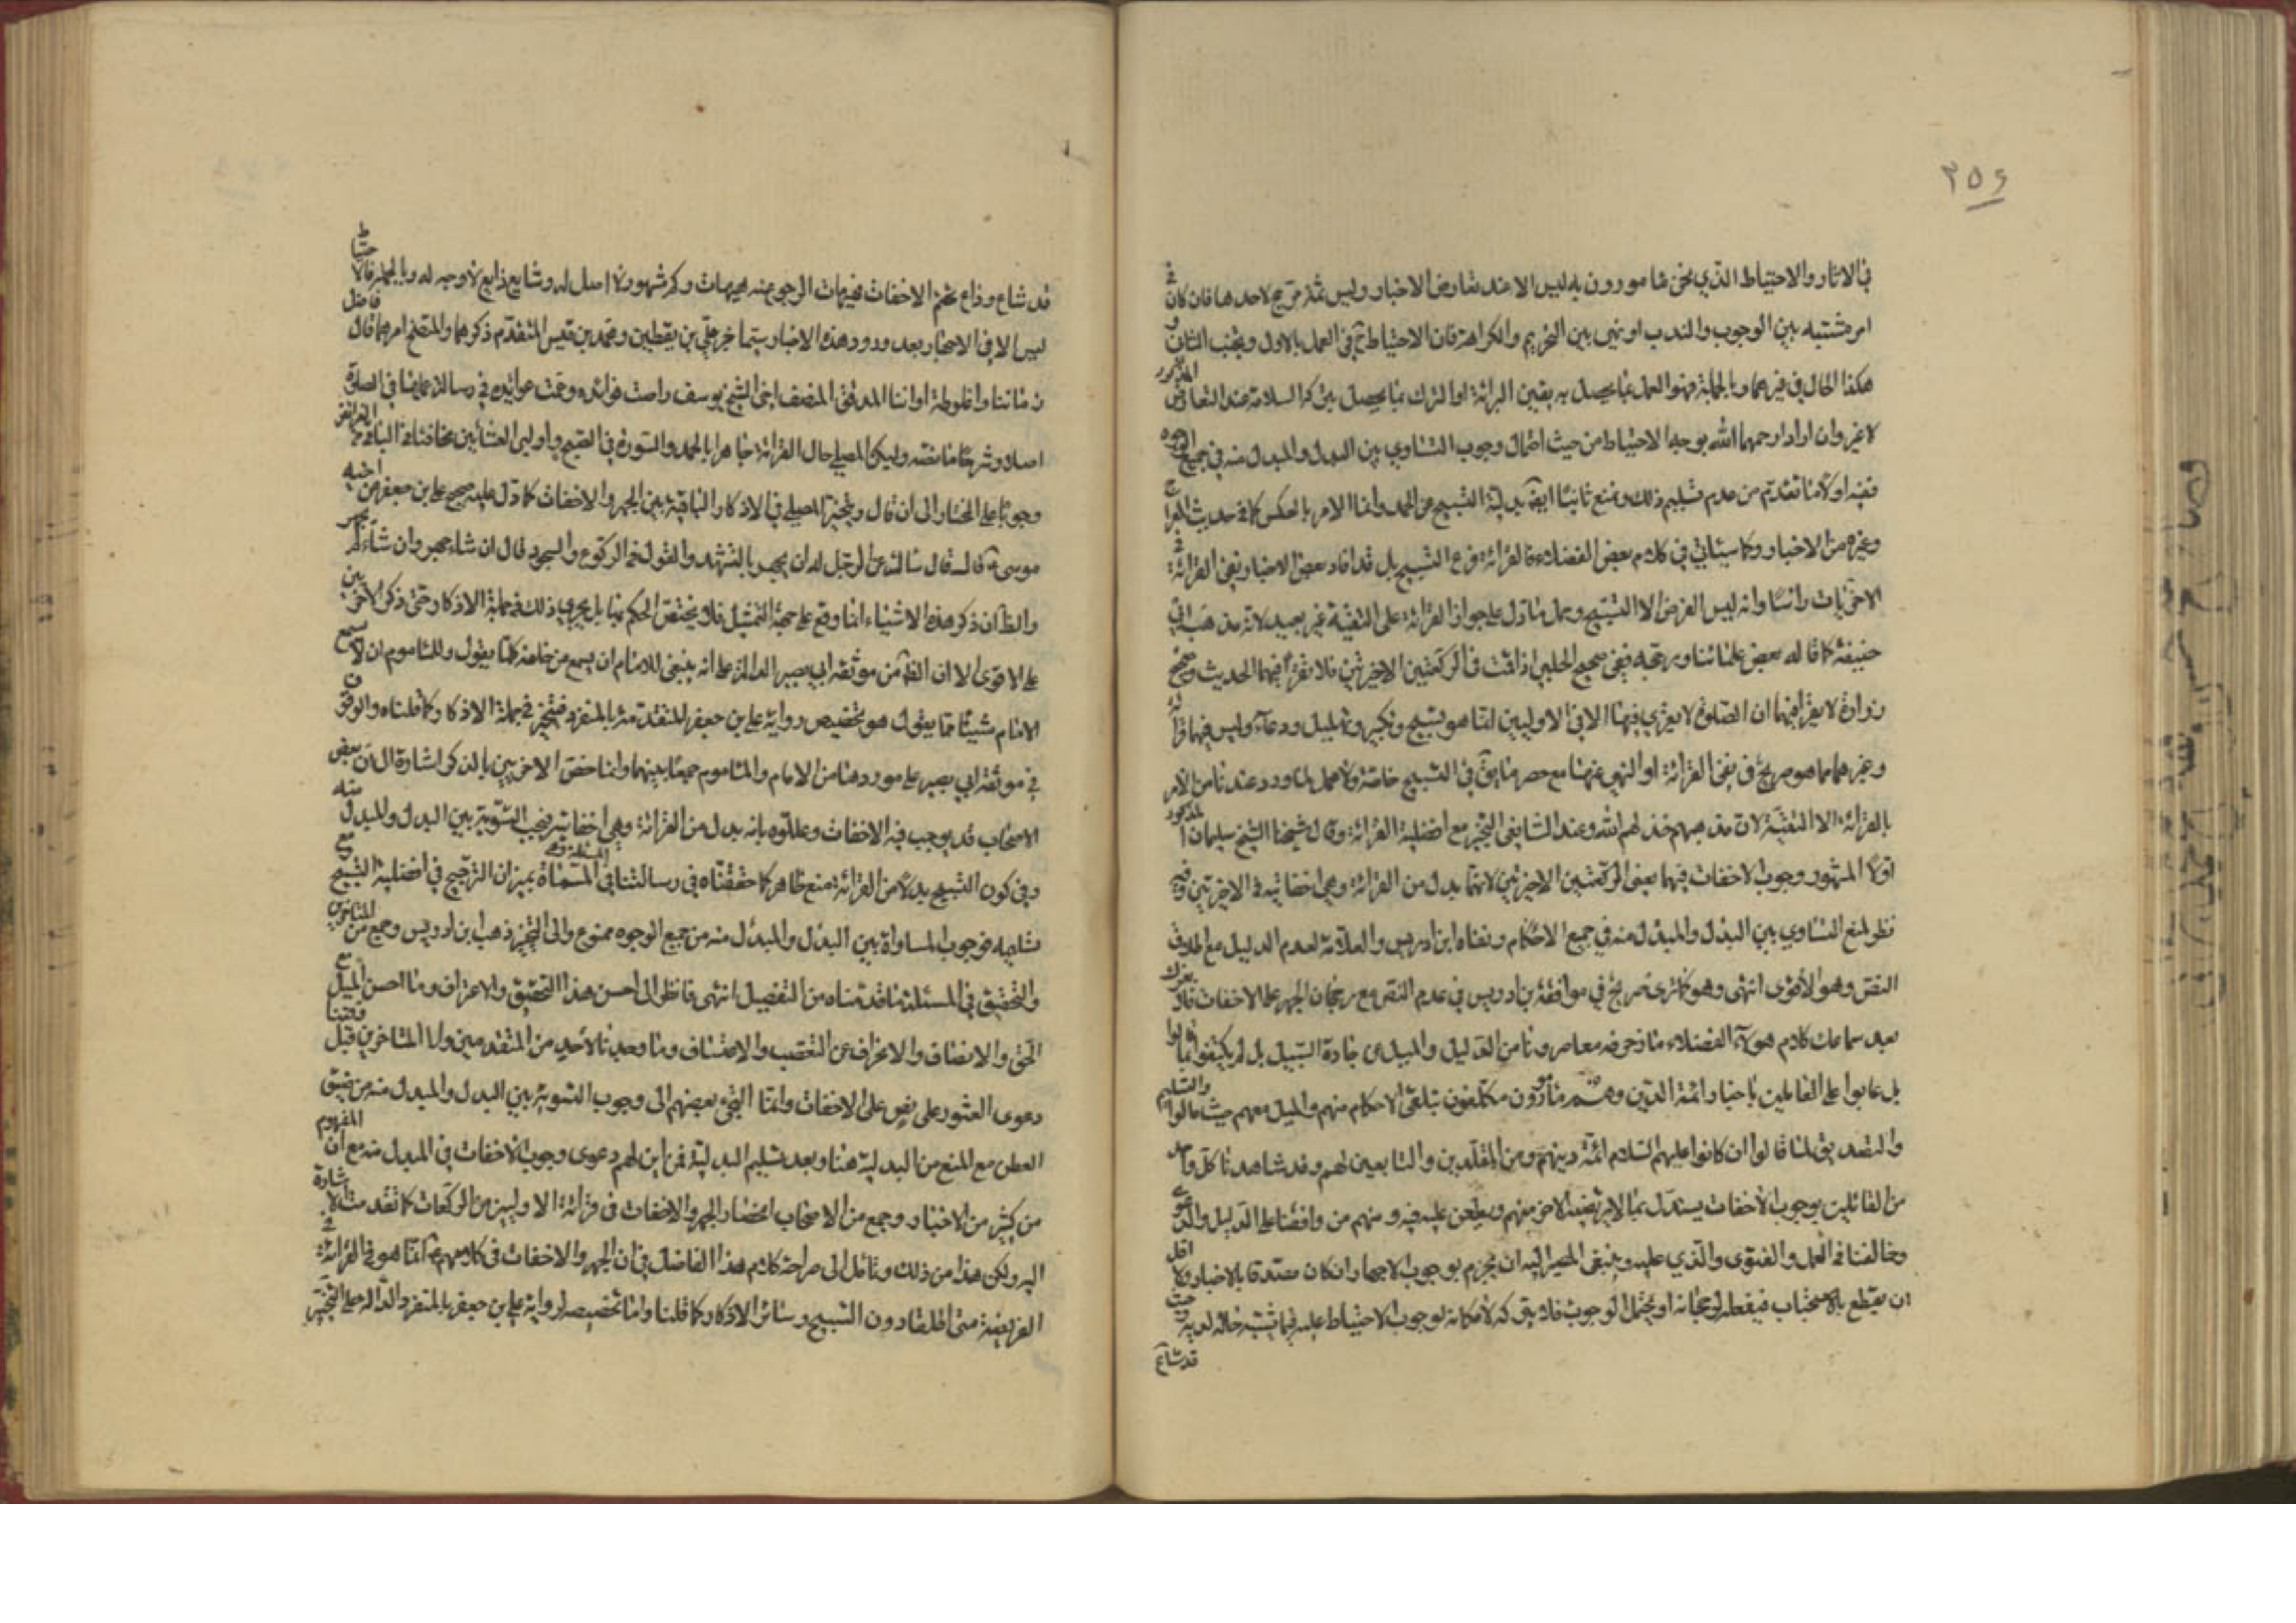 ٣٥٤
في الاثار والاحتياط الذي نحن مامورون به ليس الا عند تعارض الاخبار وليس ثمة مرجح لاحدها فان كان في
امر مشتبه بين الوجوب والندب او نهى بين التحريم والكراهة فان الاحتياط ح في العمل بالاول وتجنب الثاني و
هكذا الحال في غيرهما وبالجملة فهو العمل بما يحصل به يقين البرائة او الترك بما يحصل بتركه السلامة عند التعارض المذكور
لا غير وان ارادا رحمهما الله بوجه الاحتياط من حيث احتمال وجوب التساوي بين البدل والمبدل منه في جميع الوجوه
ففيه اولا ما تقدم من عدم تسليم ذلك ونمنع ثانيا ايض بدلية التسبيح عن الحمد وانما الامر بالعكس كما في حديث
وغيره من الاخبار وكما سيئاتي في كلام بعض الفضلاء فالقرائة فرع التسبيح بل قد افاد بعض الاخبار نفى القرائة في
الاخيرتين راسا وانه ليس الفرض الا التسبيح وحمل ما دل على جواز القرائة على التقية غير بعيد لانه مذهب ابي
حنيفة كما قاله بعض علمائنا ورجحه ففي صحيح الحلبي اذا قمت في الركعتين الاخيرتين فلا تقرأ فيهما الحديث وصحيح
زرارة لا يقرا فيهما ان الصلوة لا يقرء فيها الا في الاوليين انما هو تسبيح وتكبير وتهليل ودعاء وليس فيها قرائة
وغيرهما مما هو صريح في نفى القرائة او النهي عنها مع حصر ما بقى في التسبيح خاصة ولا محمل لما ورد عندنا من الامر
بالقرائة الا التقية لان مذهبهم خذلهم الله وعند الشافعي التخيير مع افضلية القرائة وقال شيخنا الشيخ سليمان المذكور
اولا المشهور وجوب الاخفات فيهما يعني الركعتين الاخيرتين لانهما بدل من القرائة وهي اخفاتية في الاخيرتين وفيه
نظر لمنع التساوي بين البدل والمبدل منه في جميع الاحكام ونفاه ابن ادريس والعلامة لعدم الدليل مع اطلاق
النص وهو الاقوى انتهى وهو كما ترى صريح في موافقة بن ادريس في عدم النص مع رجحان الجهر على الاخفات فلا يغرك
بعد سماعك كلام هؤلاء الفضلاء ما زخرفه معاصرونا من التدليل والميل عن جادة السبيل بل لم يكتفوا بما قالوا
بل عابوا على القائلين باخبار ائمة الدين وهم مأمورون مكلفون بتلقى الاحكام منهم والميل معهم حيث مالوا والتسليم
والتصديق لما قالوا ان كانوا عليهم السلام ائمة دينهم ومن المقلدين والتابعين لهم وقد شاهدنا كل واحد
من القائلين بوجوب الاخفات يستدل بما لا يرتضيه الاخر منهم ويطعن عليه فيه ومنهم من وافقنا على الدليل والدعوى
وخالفنا في العمل والفتوى والذي عليه ينبغي المصير اليه ان يجزم بوجوب الاجهار ان كان مصدقا بالاخبار ولا اقل
ان يقطع بالاستحباب فيفعله لرجحانه او يحتمل الوجوب فلا يتركه لامكانه لوجوب الاحتياط عليه فيما يشتبه حاله لديه وحيث
قد شاع
قد شاع وذاع تحتم الاخفات فهيهات الرجوع عنه هيهات وكم مشهور لا اصل له وشايع ذايع لا وجه له وبالجملة فالاحتياط
ليس الا في الاجهار بعد ورود هذه الاخبار سيما خبر علي بن يقطين ومحمد بن قيس المتقدم ذكرهما والمتضح امرهما قال فاضل
زماننا وافلوطة اواننا المدقق المنصف اخى الشيخ يوسف دامت فوائده وعمت عوائده في رسالة عملها في الصلوة
اصلا وشرحا ما نصه وليكن المصلي حال القرائة جاهرا بالحمد والسورة في الصبح واوليى العشائين مخافتا في البواقي
وجوبا على المختار الى ان قال ويتخير المصلي في الاذكار الباقية بين الجهر والاخفات كما دل عليه صحيح علي بن جعفر عن اخيه
موسى ع قال سالته عن الرجل له ان يجهر بالتشهد والقول في الركوع والسجود قال ان شاء جهر وان شاء لم يجهر
والظ ان ذكر هذه الاشياء انما وقع على جهة التمثيل فلا يختص الحكم بها بل يجري ذلك في جملة الاذكار حتى ذكر الاخيرتين
على الاقوى الا ان الظ من موثقة ابي بصير الدالة على انه ينبغى للامام ان يسمع من خلفه كلما يقول وللماموم ان لا يسمع
الامام شيئا مما يقول هو تخصيص رواية علي بن جعفر المتقدمة بالمنفرد فيتخير في جملة الاذكار كما قلناه والوقوف
في موثقة ابي بصير على موردها من الامام والماموم جمعا بينهما وانما خص الاخريين بالذكر اشارة الى ان بعض
الاصحاب قد يوجب فيه الاخفات وعللوه بانه بدل من القرائة وهي اخفاتية فيجب التسوية بين البدل والمبدل منه
وفي كون التسبيح بدلا من القرائة منع ظاهر كما حققناه في رسالتنا في المسئلة المسماة بميزان الترجيح في افضلية التسبيح
تسليمه فوجوب المساواة بين البدل والمبدل منه من جميع الوجوه ممنوع والى التخيير ذهب ابن ادريس وجمع من المتاخرين
والتحقيق في المسئلة ما قدمناه من التفصيل انتهى فانظر الى احسن هذا التحقيق والاعتراف وما احسن الميل مع
الحق والانصاف والانحراف عن التعصب والاعتساف وما وجدنا لاحد من المتقدمين ولا المتاخرين قبل وقتنا
دعوى العثور على نص على الاخفات وانما التجئ بعضهم الى وجوب التسوية بين البدل والمبدل منه من ضيق
العطن مع المنع من البدلية هنا وبعد تسليم البدلية فمن اين لهم دعوى وجوب الاخفات في المبدل منه مع ان المفهوم
من كثير من الاخبار وجمع من الاصحاب انحصار الجهر والاخفات في قرائة الاوليين من الركعات كما تقدمت الاشارة
اليه ولكن هذا من ذلك وتامل الى صراحة كلام هذا الفاضل في ان الجهر والاخفات في كلامهم ع انما هو في القرائة في
الفريضة متى اطلقا دون التسبيح وسائر الاذكار كما قلنا واما تخصيصه لرواية علي بن جعفر بالمنفرد الدالة على التخيير